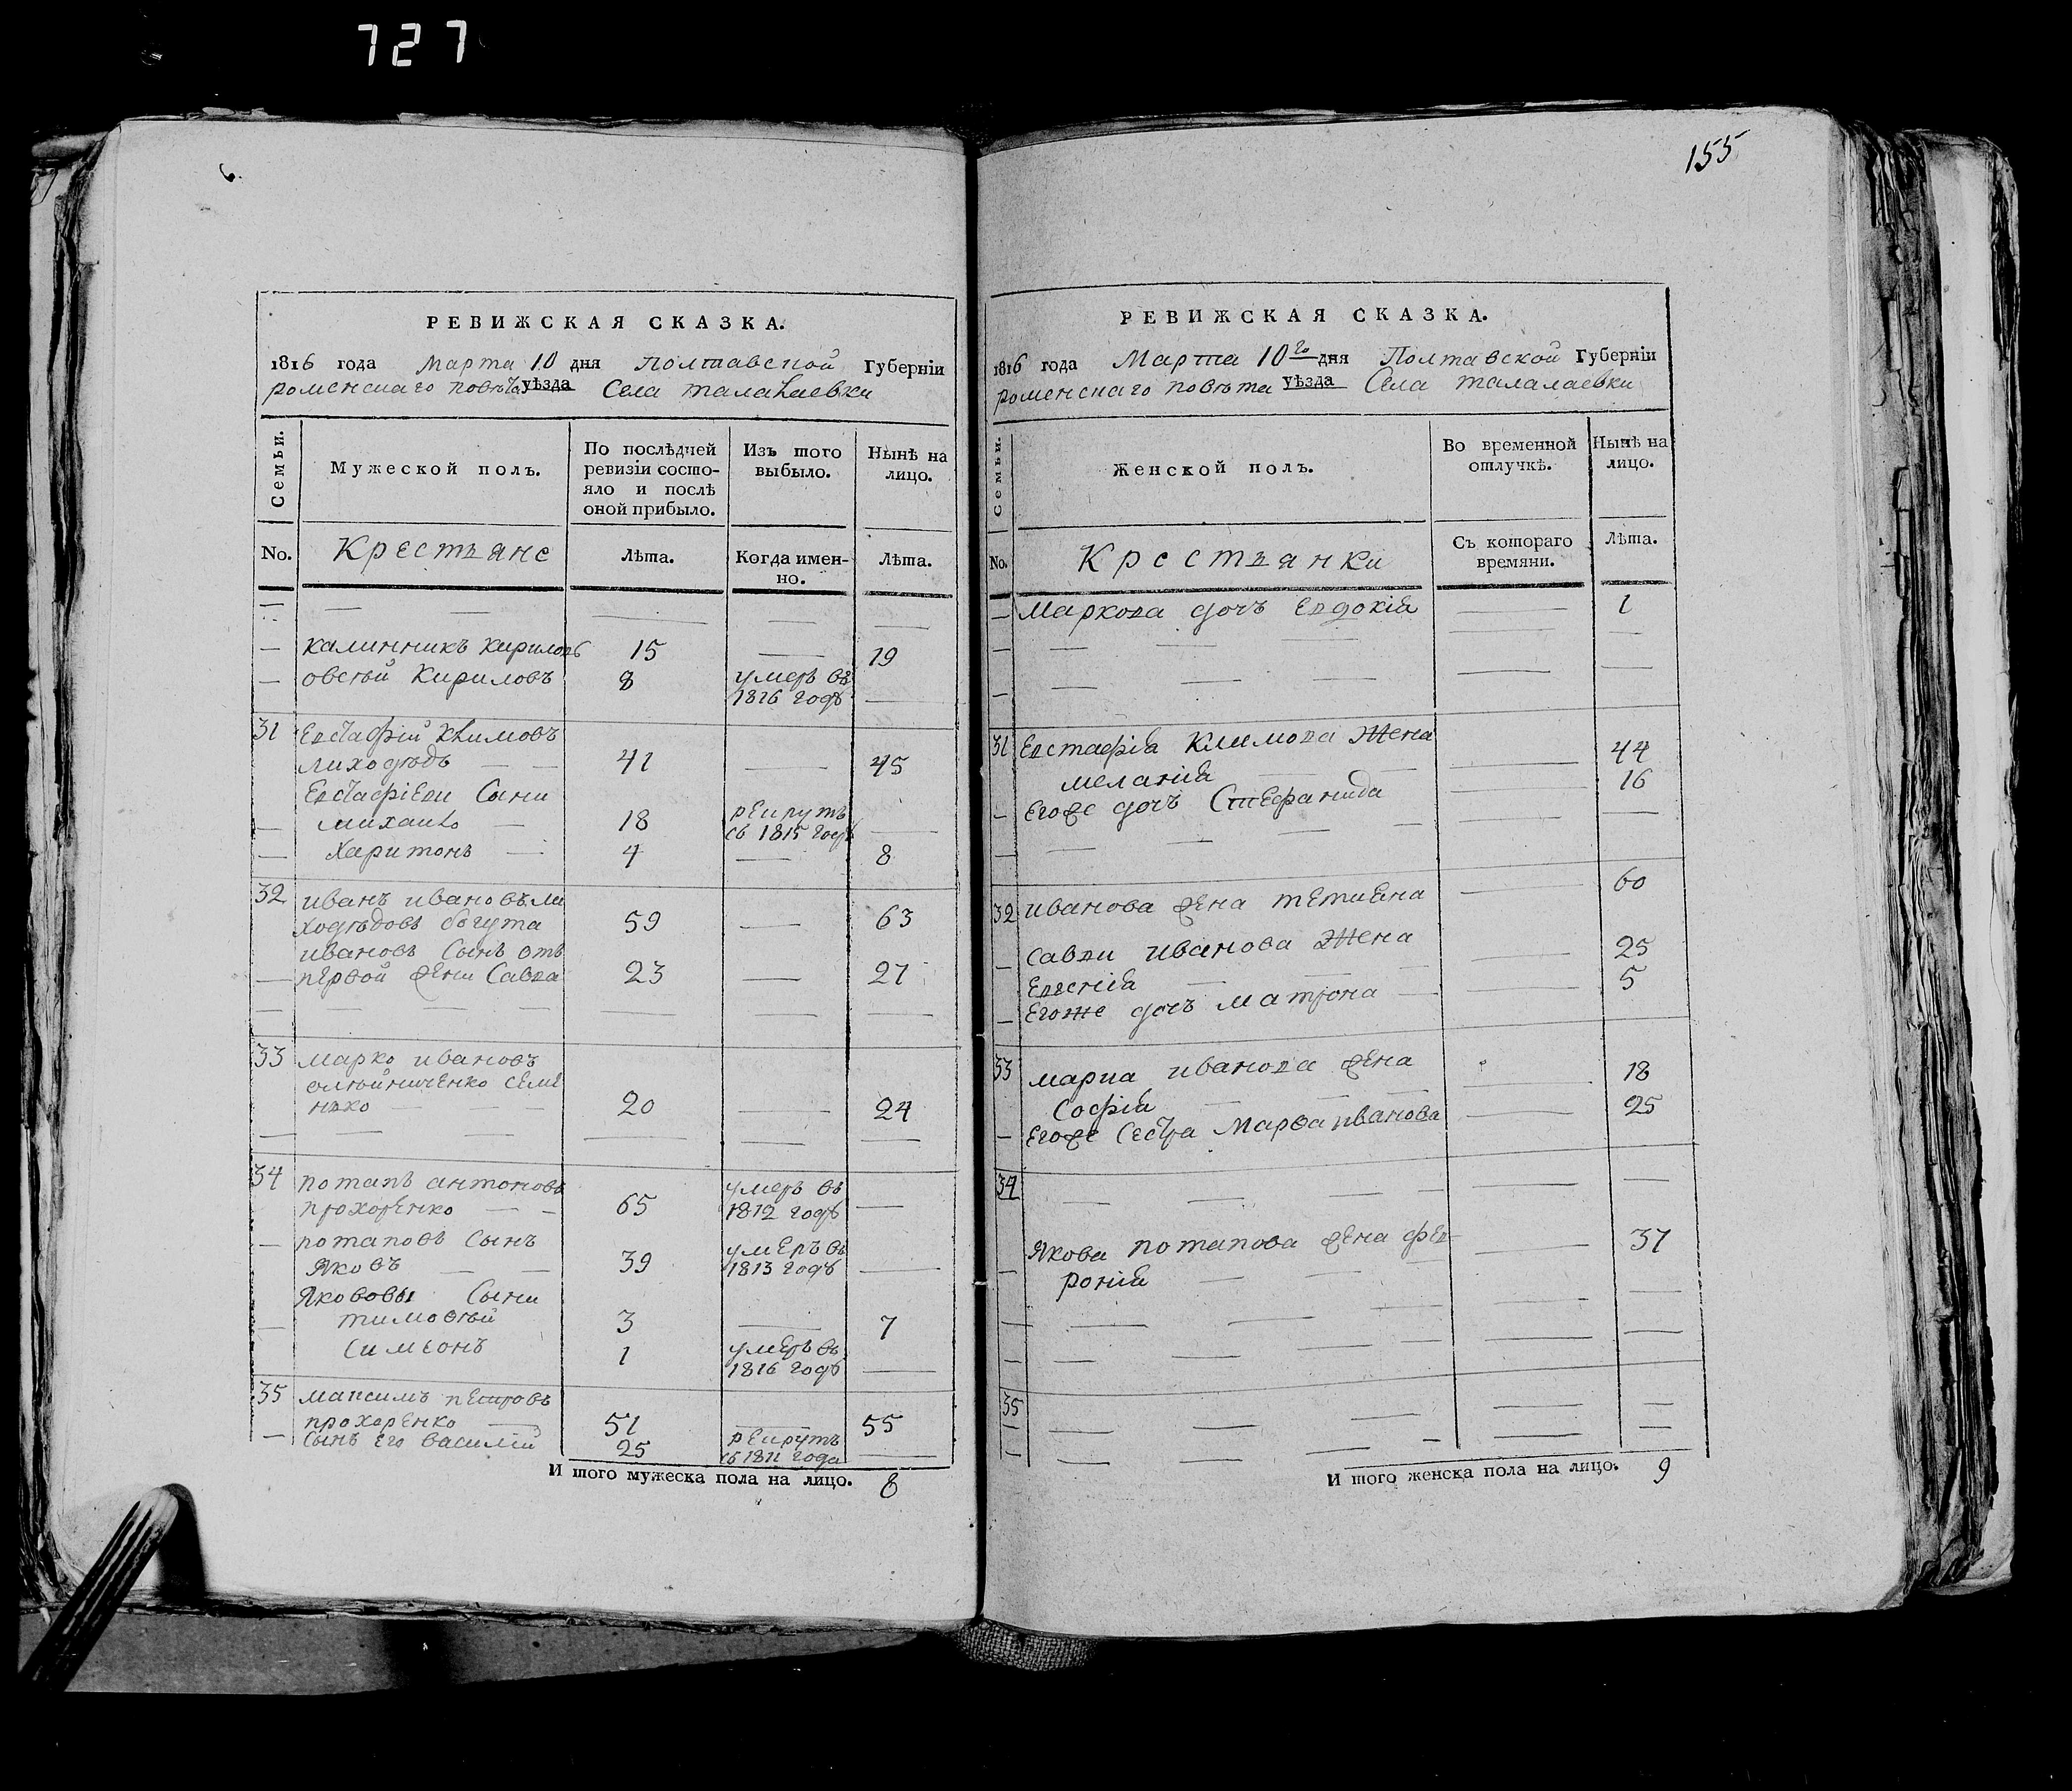 727
6.
РЕВИЖСКАЯ СКАЗКА.
1816 года Марта 10 дня Полтавской Губерніи
роменскаго повѣта уѣзда Села талалаевки
Семьи.
Мужеской полъ.
По послѣдней ревизіи состо-
яло и послѣ
оной прибыло.
Изъ того
выбыло.
Нынѣ на
лицо.
No.
Крестьяне
Лѣта.
Когда имен-
но.
Лѣта.
— калинникъ кириловъ 15 — 19
— овсѣй Кириловъ 8 умеръ въ
1816 годѣ —
31 Евстафій Климовъ
лиходѣдъ — — 41 — 45
Евстафіеви Сыни
— михаило — 18 рекрутъ
съ 1815 годѣ —
— Харитонъ — 4 — 8
32 иванъ ивановъ ли
ходѣдовъ богута 59 — 63
ивановъ Сынъ отъ
— первой жени Савва 23 — 27
33 марко ивановъ
олѣйниченко семе
нько — — — 20 — 24
34 потапъ антоновъ
прохоренко — — 65 умеръ въ
1812 годѣ —
— потаповъ Сынъ
Яковъ — — 39 умеръ въ
1813 годѣ —
Яковови Сыни
— тимофѣй 3 — 7
симеонъ 1 умеръ въ
1816 годѣ —
35 максимъ петровъ
прохоренко — 51 — 55
— Сынъ его василій 25 рекрутъ
съ 1811 года —
И того мужеска пола на лицо. 8
155
РЕВИЖСКАЯ СКАЗКА.
1816 года Марта 10го дня Полтавской Губерніи
роменскаго повѣта уѣзда Села талалаевки
Семьи.
Женской полъ.
Во временной
отлучкѣ.
Нынѣ на
лицо.
No.
Крестьянки
Съ котораго
времяни.
Лѣта.
— Маркова дочъ Евдокія — 1
31 Евстафія Климова Жена
меланія — 44
— Егоже дочъ Стефанида — 16
32 иванова жена тетиана — 60
— Савви иванова Жена
Евгенія — — 25
— Егоже дочъ матрона — 5
33 марка иванова жена
Софія — — 18
— Егоже Сестра Марфа иванова — 25
34 — — — —
Якова потапова жена фев-
— ронія — — 37
35 — — — —
И того женска пола на лицо. 9